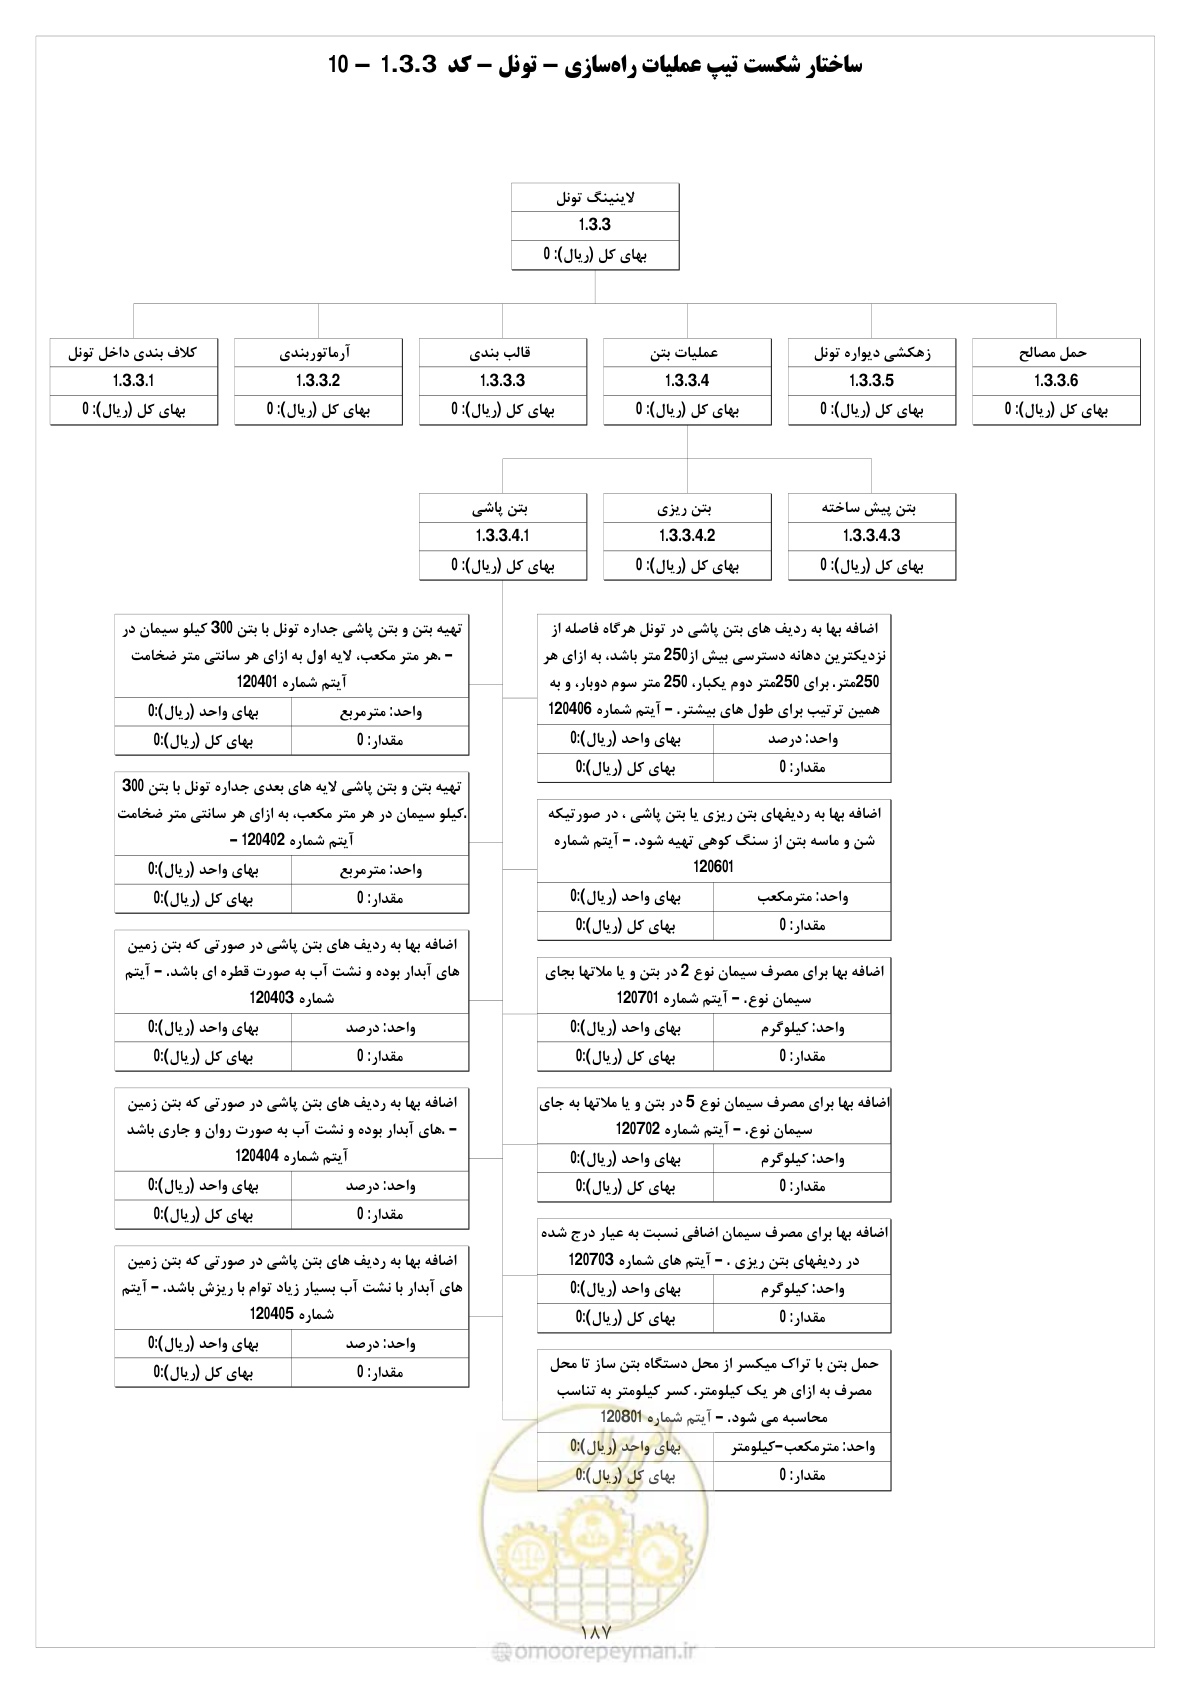 ساختار شکست تیپ عملیات راه‌سازی – تونل – کد 1.3.3 – 10
لاینینگ تونل
1.3.3
بهای کل (ریال): 0
حمل مصالح
1.3.3.6
بهای کل (ریال): 0
زهکشی دیواره تونل
1.3.3.5
بهای کل (ریال): 0
عملیات بتن
1.3.3.4
بهای کل (ریال): 0
قالب بندی
1.3.3.3
بهای کل (ریال): 0
آرماتوربندی
1.3.3.2
بهای کل (ریال): 0
کلاف بندی داخل تونل
1.3.3.1
بهای کل (ریال): 0
بتن پیش ساخته
1.3.3.4.3
بهای کل (ریال): 0
بتن ریزی
1.3.3.4.2
بهای کل (ریال): 0
بتن پاشی
1.3.3.4.1
بهای کل (ریال): 0
اضافه بها به ردیف های بتن پاشی در تونل هرگاه فاصله از
نزدیکترین دهانه دسترسی بیش از250 متر باشد، به ازای هر
250متر. برای 250متر دوم یکبار، 250 متر سوم دوبار، و به
همین ترتیب برای طول های بیشتر. – آیتم شماره 120406
واحد: درصد
بهای واحد (ریال):0
مقدار: 0
بهای کل (ریال):0
اضافه بها به ردیفهای بتن ریزی یا بتن پاشی ، در صورتیکه
شن و ماسه بتن از سنگ کوهی تهیه شود. – آیتم شماره
120601
واحد: مترمکعب
بهای واحد (ریال):0
مقدار: 0
بهای کل (ریال):0
اضافه بها برای مصرف سیمان نوع 2 در بتن و یا ملاتها بجای
سیمان نوع. – آیتم شماره 120701
واحد: کیلوگرم
بهای واحد (ریال):0
مقدار: 0
بهای کل (ریال):0
اضافه بها برای مصرف سیمان نوع 5 در بتن و یا ملاتها به جای
سیمان نوع. – آیتم شماره 120702
واحد: کیلوگرم
بهای واحد (ریال):0
مقدار: 0
بهای کل (ریال):0
اضافه بها برای مصرف سیمان اضافی نسبت به عیار درج شده
در ردیفهای بتن ریزی . – آیتم های شماره 120703
واحد: کیلوگرم
بهای واحد (ریال):0
مقدار: 0
بهای کل (ریال):0
حمل بتن با تراک میکسر از محل دستگاه بتن ساز تا محل
مصرف به ازای هر یک کیلومتر. کسر کیلومتر به تناسب
محاسبه می شود. – آیتم شماره 120801
واحد: مترمکعب-کیلومتر
بهای واحد (ریال):0
مقدار: 0
بهای کل (ریال):0
تهیه بتن و بتن پاشی جداره تونل با بتن 300 کیلو سیمان در
– .هر متر مکعب، لایه اول به ازای هر سانتی متر ضخامت
آیتم شماره 120401
واحد: مترمربع
بهای واحد (ریال):0
مقدار: 0
بهای کل (ریال):0
تهیه بتن و بتن پاشی لایه های بعدی جداره تونل با بتن 300
.کیلو سیمان در هر متر مکعب، به ازای هر سانتی متر ضخامت
آیتم شماره 120402 –
واحد: مترمربع
بهای واحد (ریال):0
مقدار: 0
بهای کل (ریال):0
اضافه بها به ردیف های بتن پاشی در صورتی که بتن زمین
های آبدار بوده و نشت آب به صورت قطره ای باشد. – آیتم
شماره 120403
واحد: درصد
بهای واحد (ریال):0
مقدار: 0
بهای کل (ریال):0
اضافه بها به ردیف های بتن پاشی در صورتی که بتن زمین
– .های آبدار بوده و نشت آب به صورت روان و جاری باشد
آیتم شماره 120404
واحد: درصد
بهای واحد (ریال):0
مقدار: 0
بهای کل (ریال):0
اضافه بها به ردیف های بتن پاشی در صورتی که بتن زمین
های آبدار با نشت آب بسیار زیاد توام با ریزش باشد. – آیتم
شماره 120405
واحد: درصد
بهای واحد (ریال):0
مقدار: 0
بهای کل (ریال):0
امور پیمان
۱۸۷
@omoorepeyman.ir